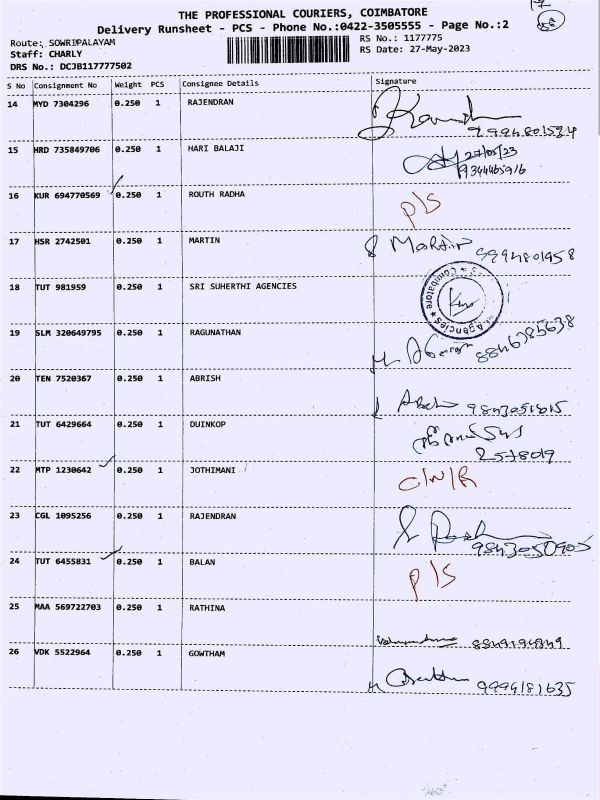 THE PROFESSIONAL COURIERS, COIMBATORE
Delivery Runsheet - PCS - Phone No.:0422-3505555 - Page No.:2
Route: SOWRIPALAYAM
Staff: CHARLY
DRS No.: DCJB117777502
RS No.: 1177775
RS Date: 27-May-2023
S No Consignment No Weight PCS Consignee Details Signature
14 MYD 7304296 0.250 1 RAJENDRAN
15 HRD 735849706 0.250 1 HARI BALAJI 27/05/23
16 KUR 694770569 0.250 1 ROUTH RADHA P/S
17 HSR 2742501 0.250 1 MARTIN Martin 9994801958
18 TUT 981959 0.250 1 SRI SUHERTHI AGENCIES
19 SLM 320649795 0.250 1 RAGUNATHAN 8846385638
20 TEN 7520367 0.250 1 ABRISH
21 TUT 6429664 0.250 1 DUINKOP 2578019
22 MTP 1230642 0.250 1 JOTHIMANI C/N/R
23 CGL 1095256 0.250 1 RAJENDRAN 9843050905
24 TUT 6455831 0.250 1 BALAN P/S
25 MAA 569722703 0.250 1 RATHINA
26 VDK 5522964 0.250 1 GOWTHAM 9994181635